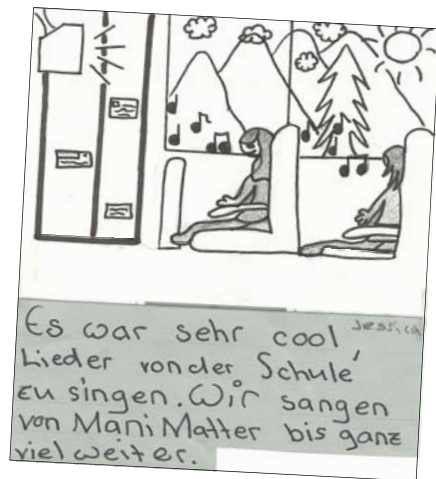 Es war sehr cool Jessica
Lieder von der Schule
zu singen. Wir sangen
von Mani Matter bis ganz
viel weiter.